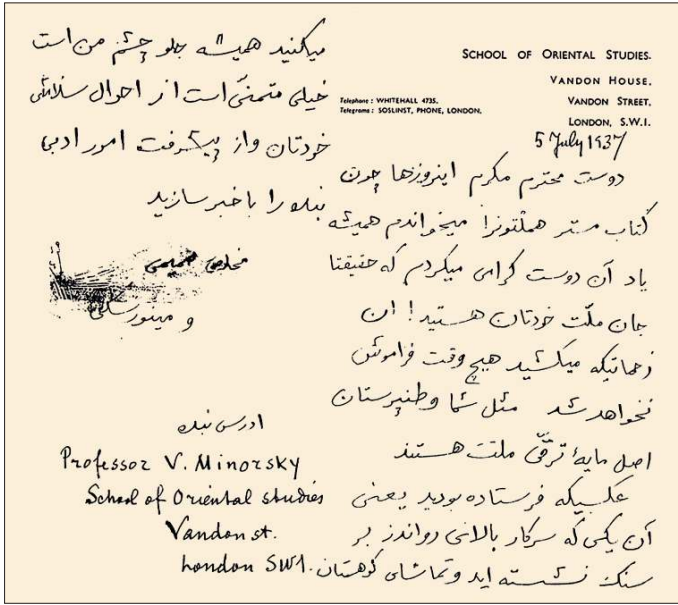 SCHOOL OF ORIENTAL STUDIES.
VANDON HOUSE,
Telephone : WHITEHALL 4735.
Telegrams : SOSLINST, PHONE, LONDON.
VANDON STREET,
LONDON, S.W.1.
5 July 1937
دوست محترم مکرم اینروزها چون
کتاب مستر هملتونرا میخواندم همیشه
یاد آن دوست گرامی میکردم که حقیقتا
جان ملّت خودتان هستید! ان
زحماتیکه میکشید هیچ وقت فراموش
نخواهد شد مثل شما وطنپرستان
اصل مایهٔ ترقّی ملت هستند
عکسیکه فرستاده بودید یعنی
آن یکی که سرکار بالای رواندز بر
سنک نشسته اید و تماشای کوهستان
میکنید همیشه جلو چشم من است
خیلی متمنّی است از احوال سلامتی
خودتان و از پیشرفت امور ادبی
بنده را با خبر سازید
مخلص صمیمی
و مینورسکی
ادرس بنده
Professor V. Minorsky
School of Oriental studies
Vandon st.
London SW1.